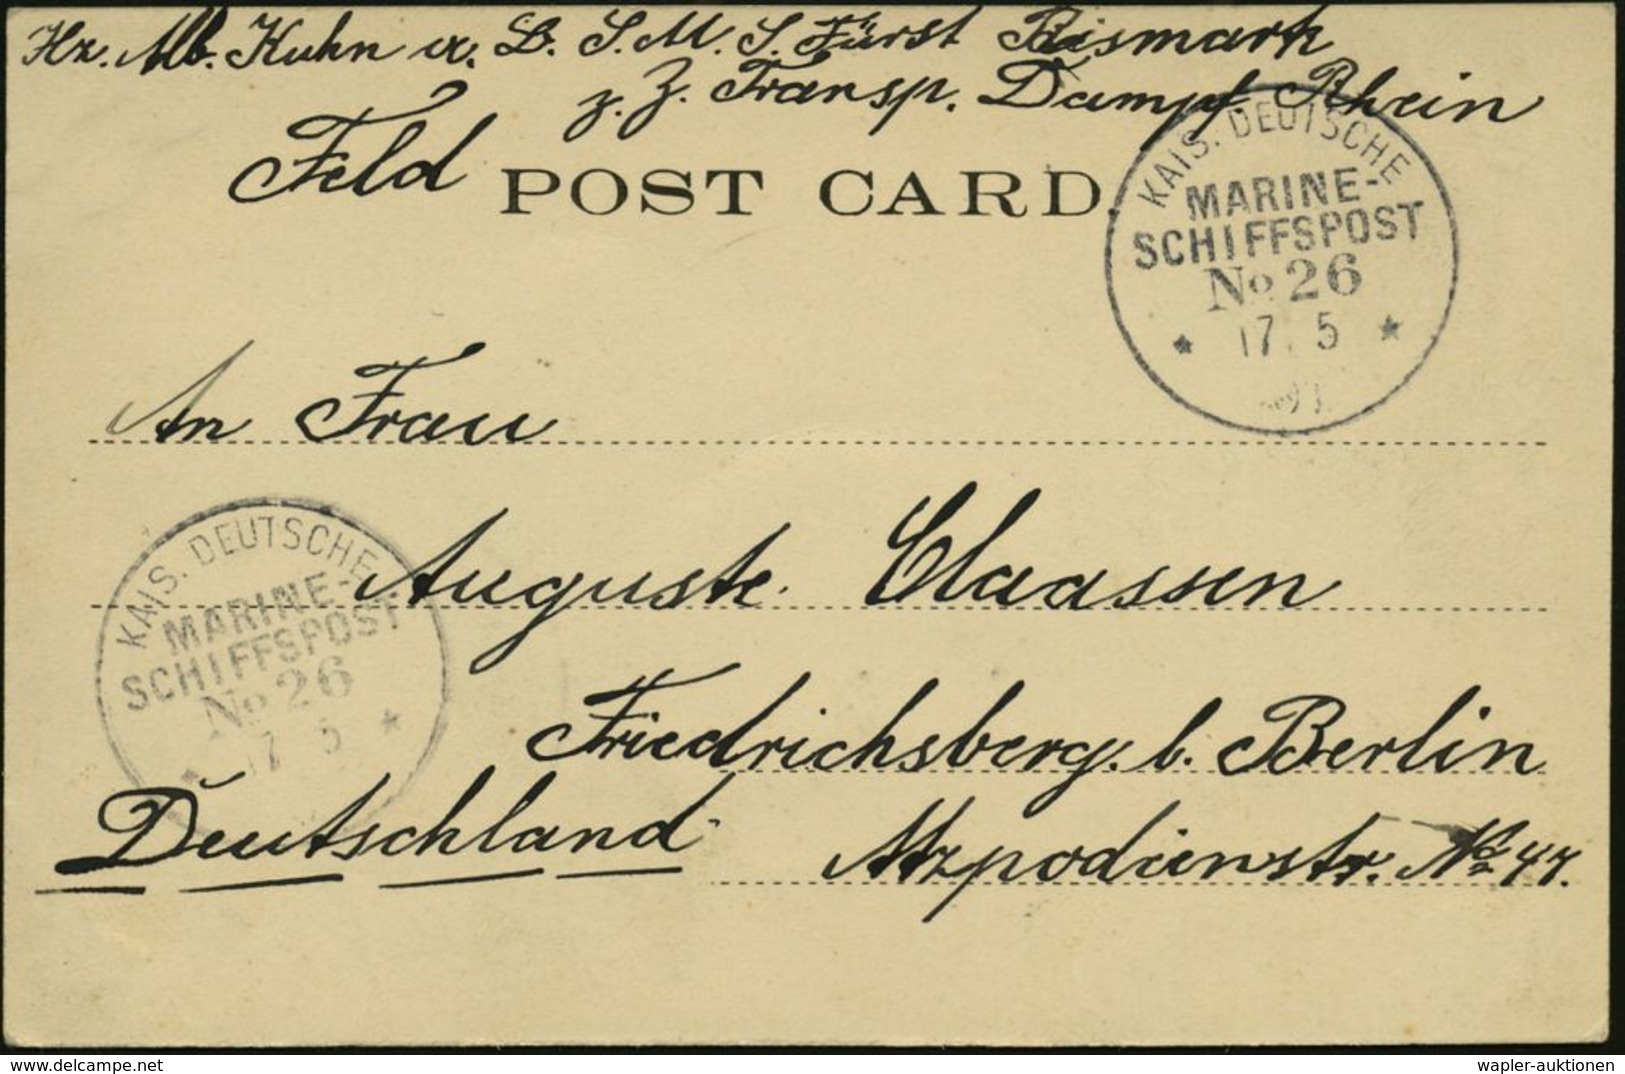 Hz. Mb. Kuhn a. B. S. M. S. Fürst Bismark
z. Z. Transp. Dampf. Rhein
Feld POST CARD.
KAIS. DEUTSCHE
MARINE-
SCHIFFSPOST
No 26
* 17. 5 *
An Frau
Auguste Claassen
KAIS. DEUTSCHE
MARINE-
SCHIFFSPOST
No 26
* 17 5 *
Friedrichsberg. b. Berlin
Deutschland
No 47.
wapler-auktionen